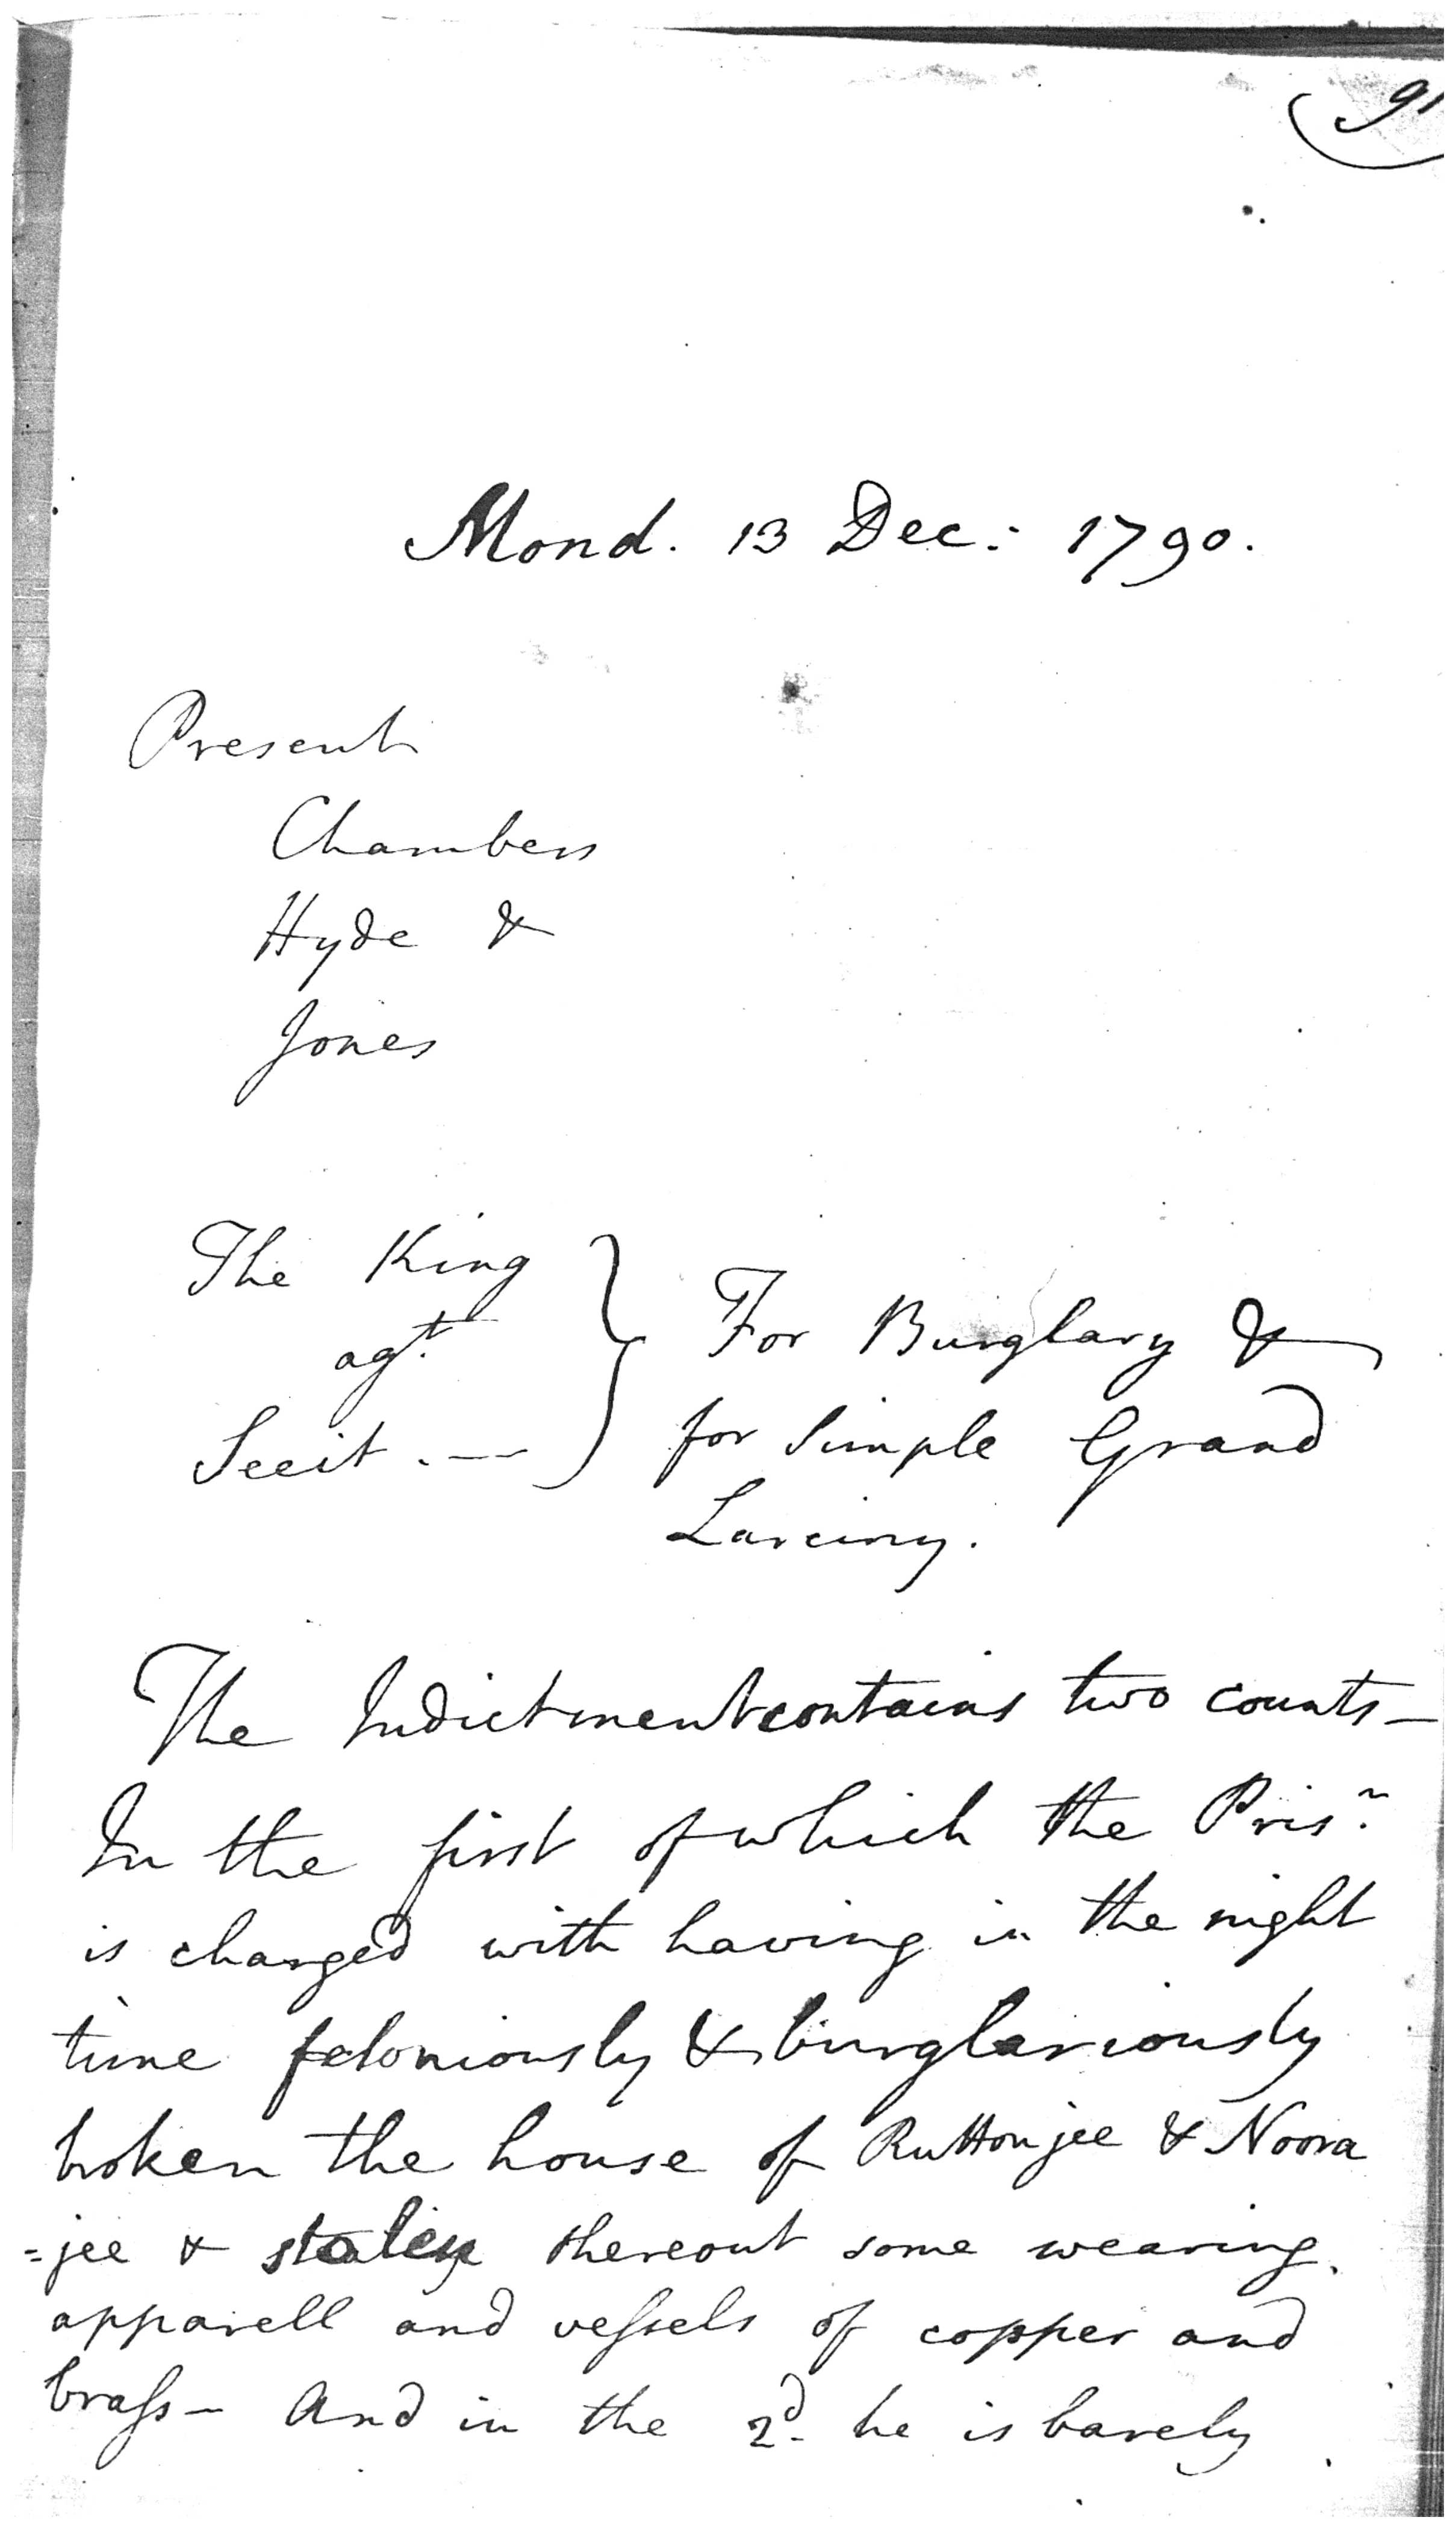 91
Mond. 13 Dec: 1790.
Present
Chambers
Hyde &
Jones
The King
agt.
Seeit. —
For Burglary &
for Simple Grand
Larciny.
The Indictment contains two counts —
In the first of which the Prisr.
is charged with having in the night
time feloniously & burglariously
broken the house of Ruttonjee & Noora
=jee & stolen thereout some wearing
apparell and veſsels of copper and
braſs — And in the 2d. he is barely